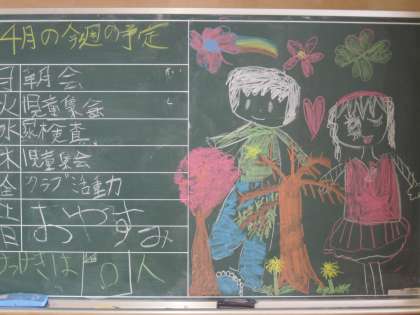 4月の今週の予定
月 朝会
火 児童集会
水 尿検査
木 児童集会
金 クラブ活動
土
日 おやすみ
は 0 人